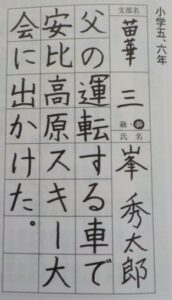 小学五、六年
支部名
苗華
三
級・段
氏名
峯秀太郎
父の運転する車で
安比高原スキー大
会に出かけた。